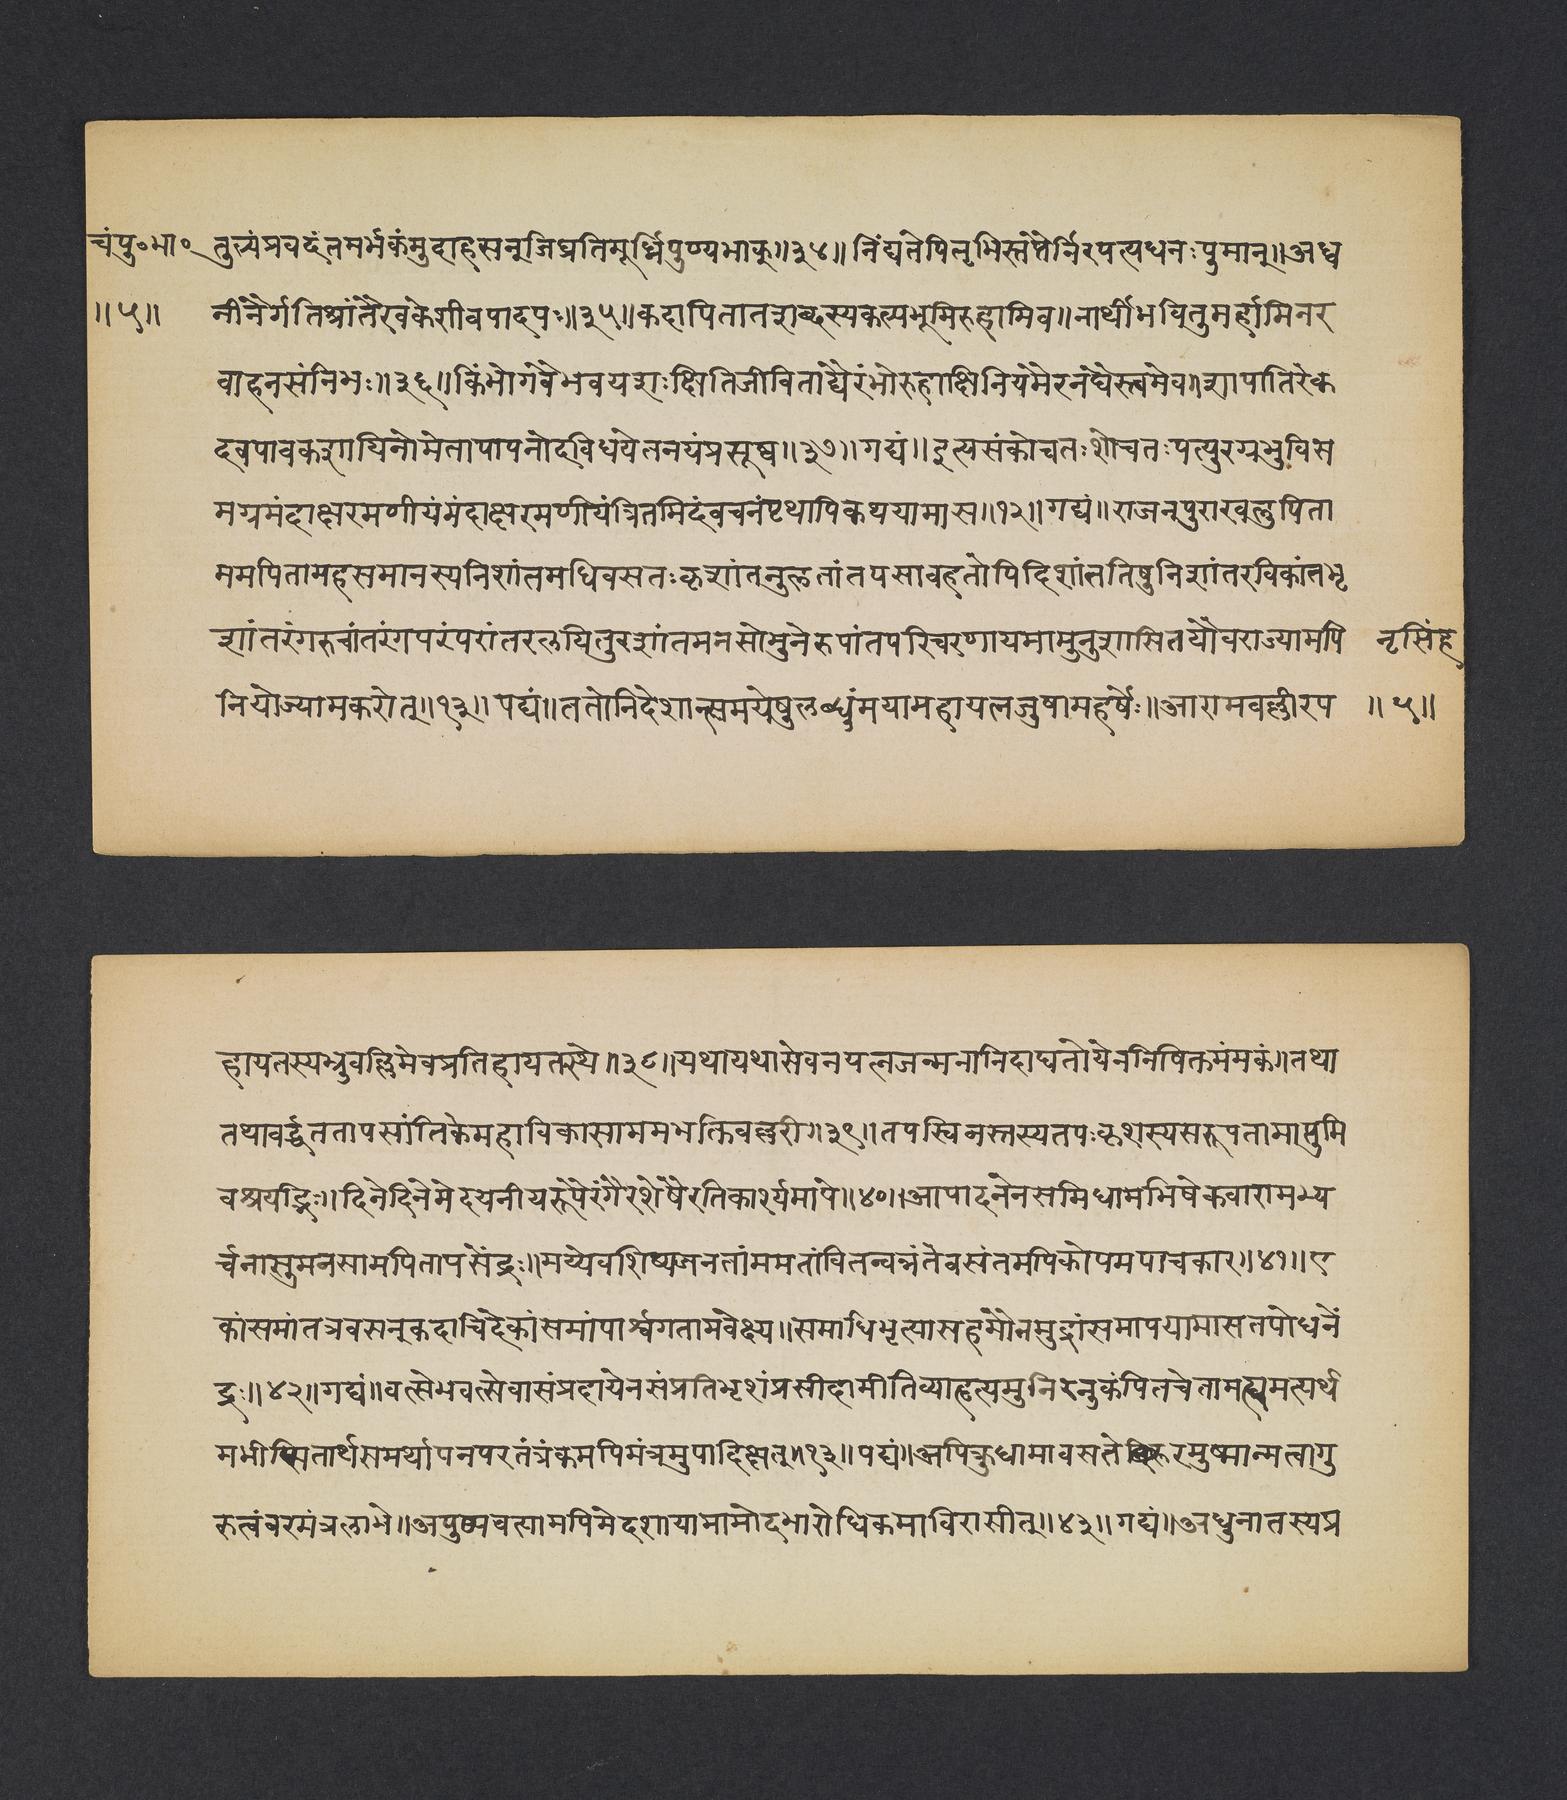 चंपु॰भा॰ तुल्यंप्रवदंतमर्भकंमुदाहसन्जिघ्रतिमूर्ध्निपुण्यभाक्॥३४॥ निंद्यतेपितृभिस्तप्तैर्निरपत्यधनःपुमान्॥अध्व
॥५॥ नीनैर्गतिश्रांतैरवकेशीवपादपः॥३५॥कदापितातशब्दस्यकल्पभूमिरुहामिव॥नार्थीभवितुमर्हामिनर
वाहनसंनिभः॥३६॥किंभोगवैभवयशःक्षितिजीविताद्यैरंभोरुहाक्षिनियमैरनघैस्त्वमेव॥शापातिरेक
दवपावकशायिनोमेतापापनोदविधयेतनयंप्रसूष्व॥३७॥गद्यं॥इत्यसंकोचतःशोचतःपत्युरग्र्यभुविस
मग्रमंदाक्षरमणीयंमंदाक्षरमणीयंत्रितमिदंवचनंपृथापिकथयामास॥१२॥गद्यं॥राजन्पुराखलुपिता
ममपितामहसमानस्यनिशांतमधिवसतःकृशांतनुलतांतपसावहतोपिदिशांततिषुनिशांतरविकांतभृ
शांतरंगरुचांतरंगपरंपरांतरलयितुरशांतमनसोमुनेरुपांतपरिचरणायमामुनुशासितयौवराज्यामपि नृसिंह
नियोज्यामकरोत्॥१३॥ पद्यं॥ततोनिदेशान्समयेषुलब्धुंमयामहायत्नजुषामहर्षेः॥आरामवल्लीरप ॥५॥
हायतस्यभ्रुवल्लिमेवप्रतिहायतस्थे॥३८॥यथायथासेवनयत्नजन्मनानिदाघतोयेननिषिक्तमंमकं॥तथा
तथावर्द्धततापसांतिकेमहाविकासाममभक्तिवल्लरी॥३९॥तपस्विनस्तस्यतपःकृशस्यसरूपतामाप्तुमि
वश्रयद्भिः॥दिनेदिनेमेदयनीयरूपैरंगैरशेषैरतिकार्श्यमापे॥४०॥आपादनेनसमिधामभिषेकवारामभ्य
र्चनासुमनसामपितापसेंद्रः॥मय्येवशिष्यजनतांममतांवितन्वन्नंतेवसंतमपिकोपमपाचकार॥४१॥ए
कांसमांतत्रवसन्कदाचिदेकांसमांपार्श्वगतामवेक्ष्य॥समाधिभृत्यासहमौनमुद्रांसमापयामासतपोधनें
द्रः॥४२॥गद्यं॥वत्सेभवत्सेवासंप्रहायेनसंप्रतिभृशंप्रसीदामीतिव्याहृत्यमुनिरनुकंपितचेतामह्यमत्यर्थ
मभीप्सितार्थसमर्थापनपरतंत्रंकमपिमंत्रमुपादिक्षत्॥१३॥पद्यं॥अपिक्रुधामावसतेरमुष्मान्मत्वागु
रुत्वंवरमंत्रलाभे॥अपुष्पवत्यामपिमेदशायामामोदभारोधिकमाविरासीत्॥४३॥गद्यं॥अधुनातस्यप्र